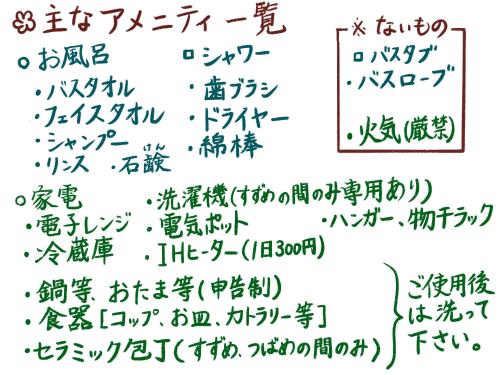 主なアメニティ一覧
お風呂
・バスタオル
・フェイスタオル
・シャンプー
・リンス ・石鹸
けん
シャワー
・歯ブラシ
・ドライヤー
・綿棒
※ないもの
ロバスタブ
・バスローブ
・火気(厳禁)
○家電
・洗濯機(すずめの間のみ専用あり)
・電子レンジ ・電気ポット ・ハンガー、物干ラック
・冷蔵庫 ・IHヒーター(1日300円)
・鍋等、おたま等(申告制)
・食器[コップ、お皿、カトラリー等]
・セラミック包丁(すずめ、つばめの間のみ)
ご使用後
は洗って
下さい。